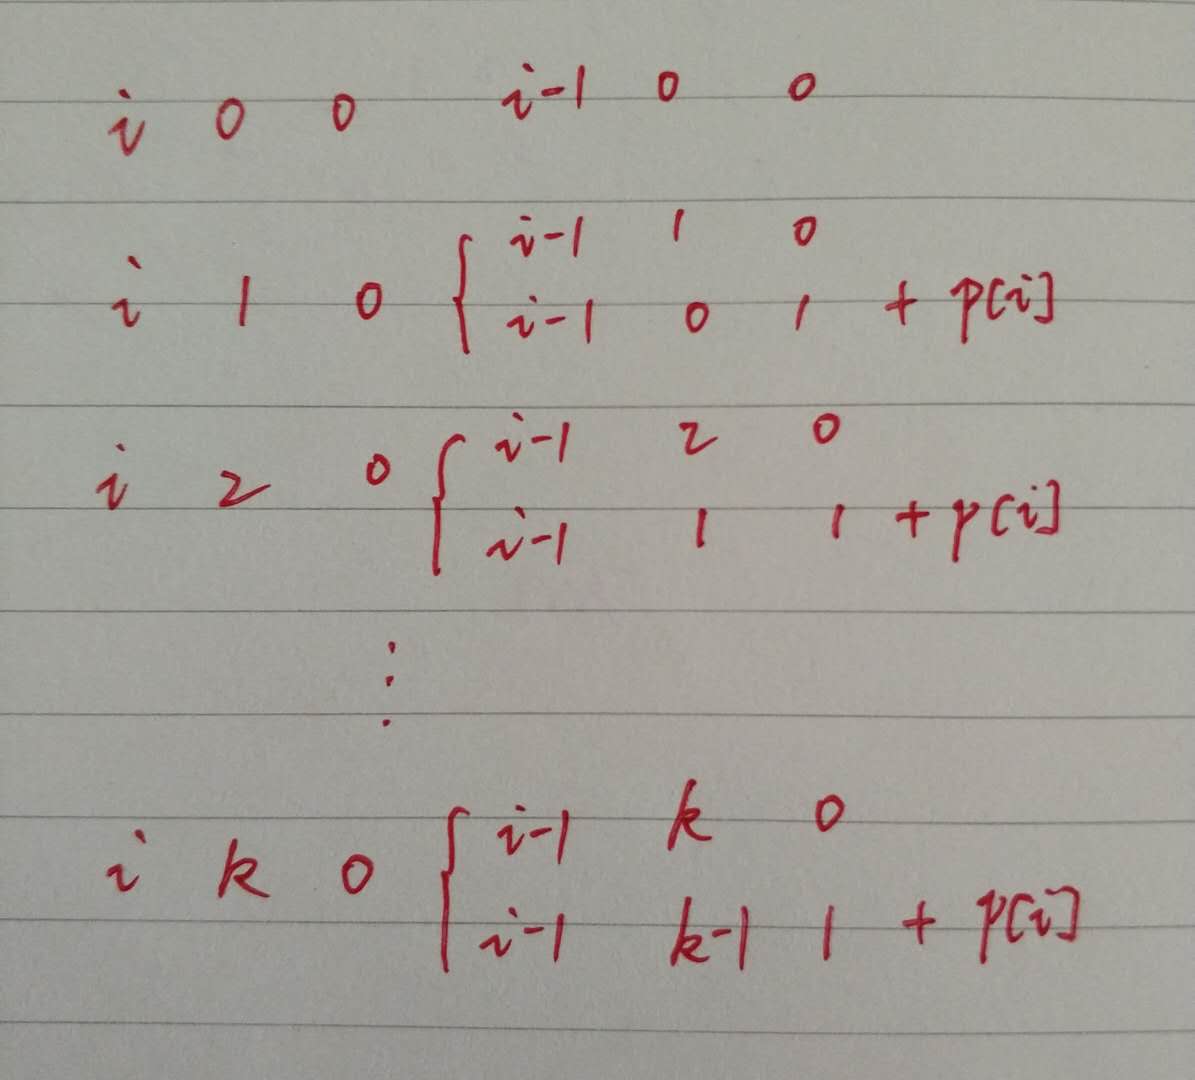 i 0 0 i-1 0 0
i-1 1 0
i 1 0 { i-1 0 1 + p[i]
i-1 2 0
i 2 0 { i-1 1 1 + p[i]
⋮
i-1 k 0
i k 0 { i-1 k-1 1 + p[i]